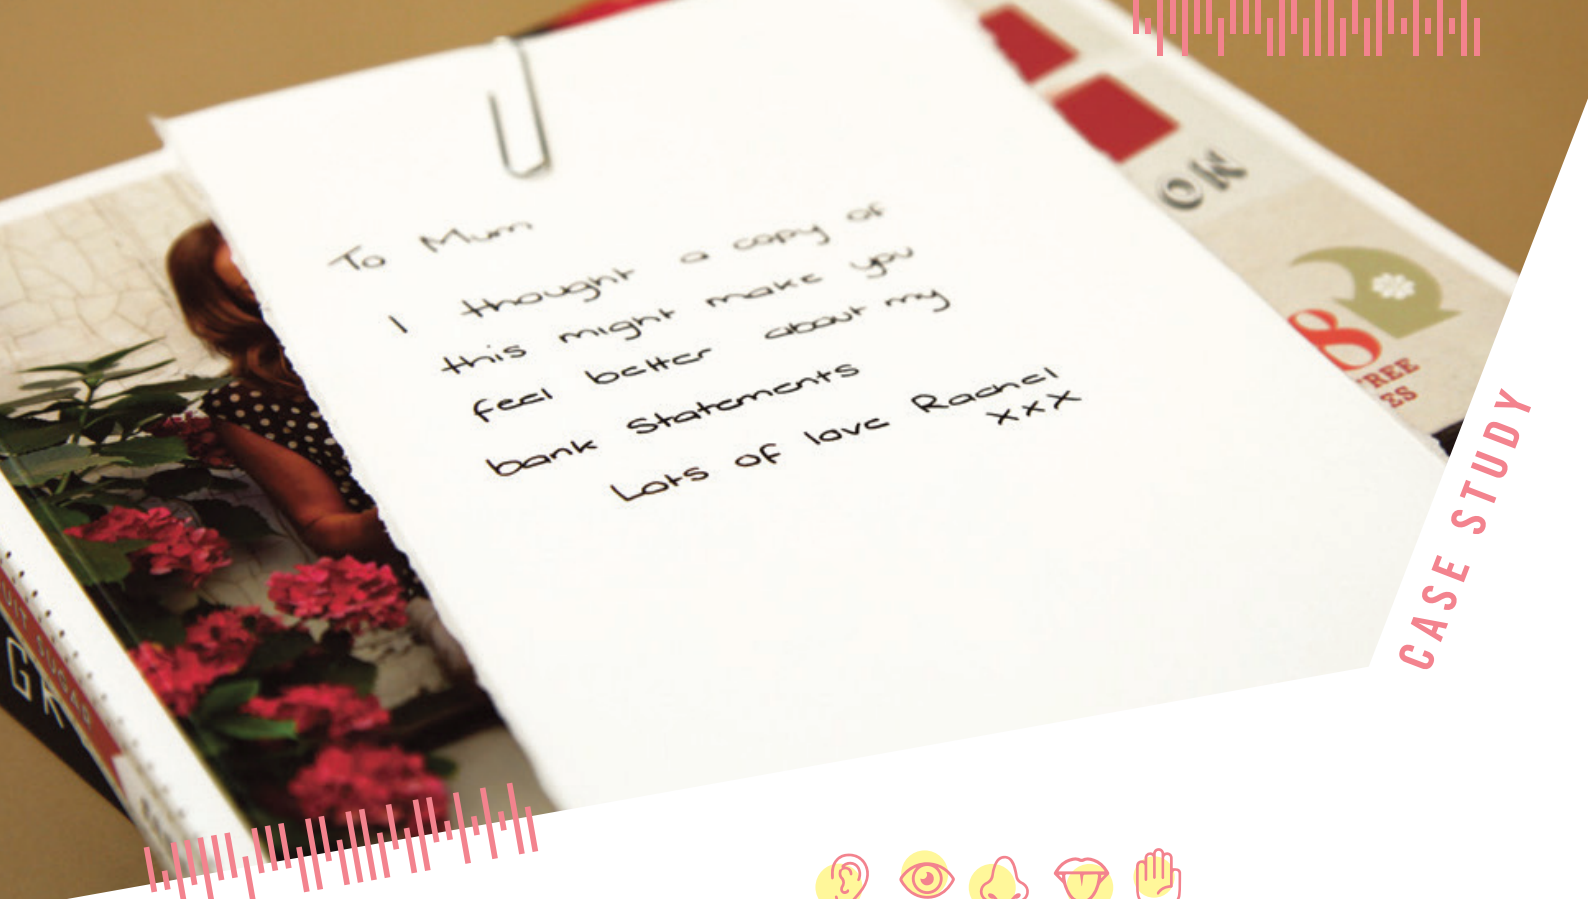 To Mum
I thought a copy of
this might make you
feel better about my
bank statements
Lots of love Rachel
xxx
OK
8
FREE
CASE STUDY